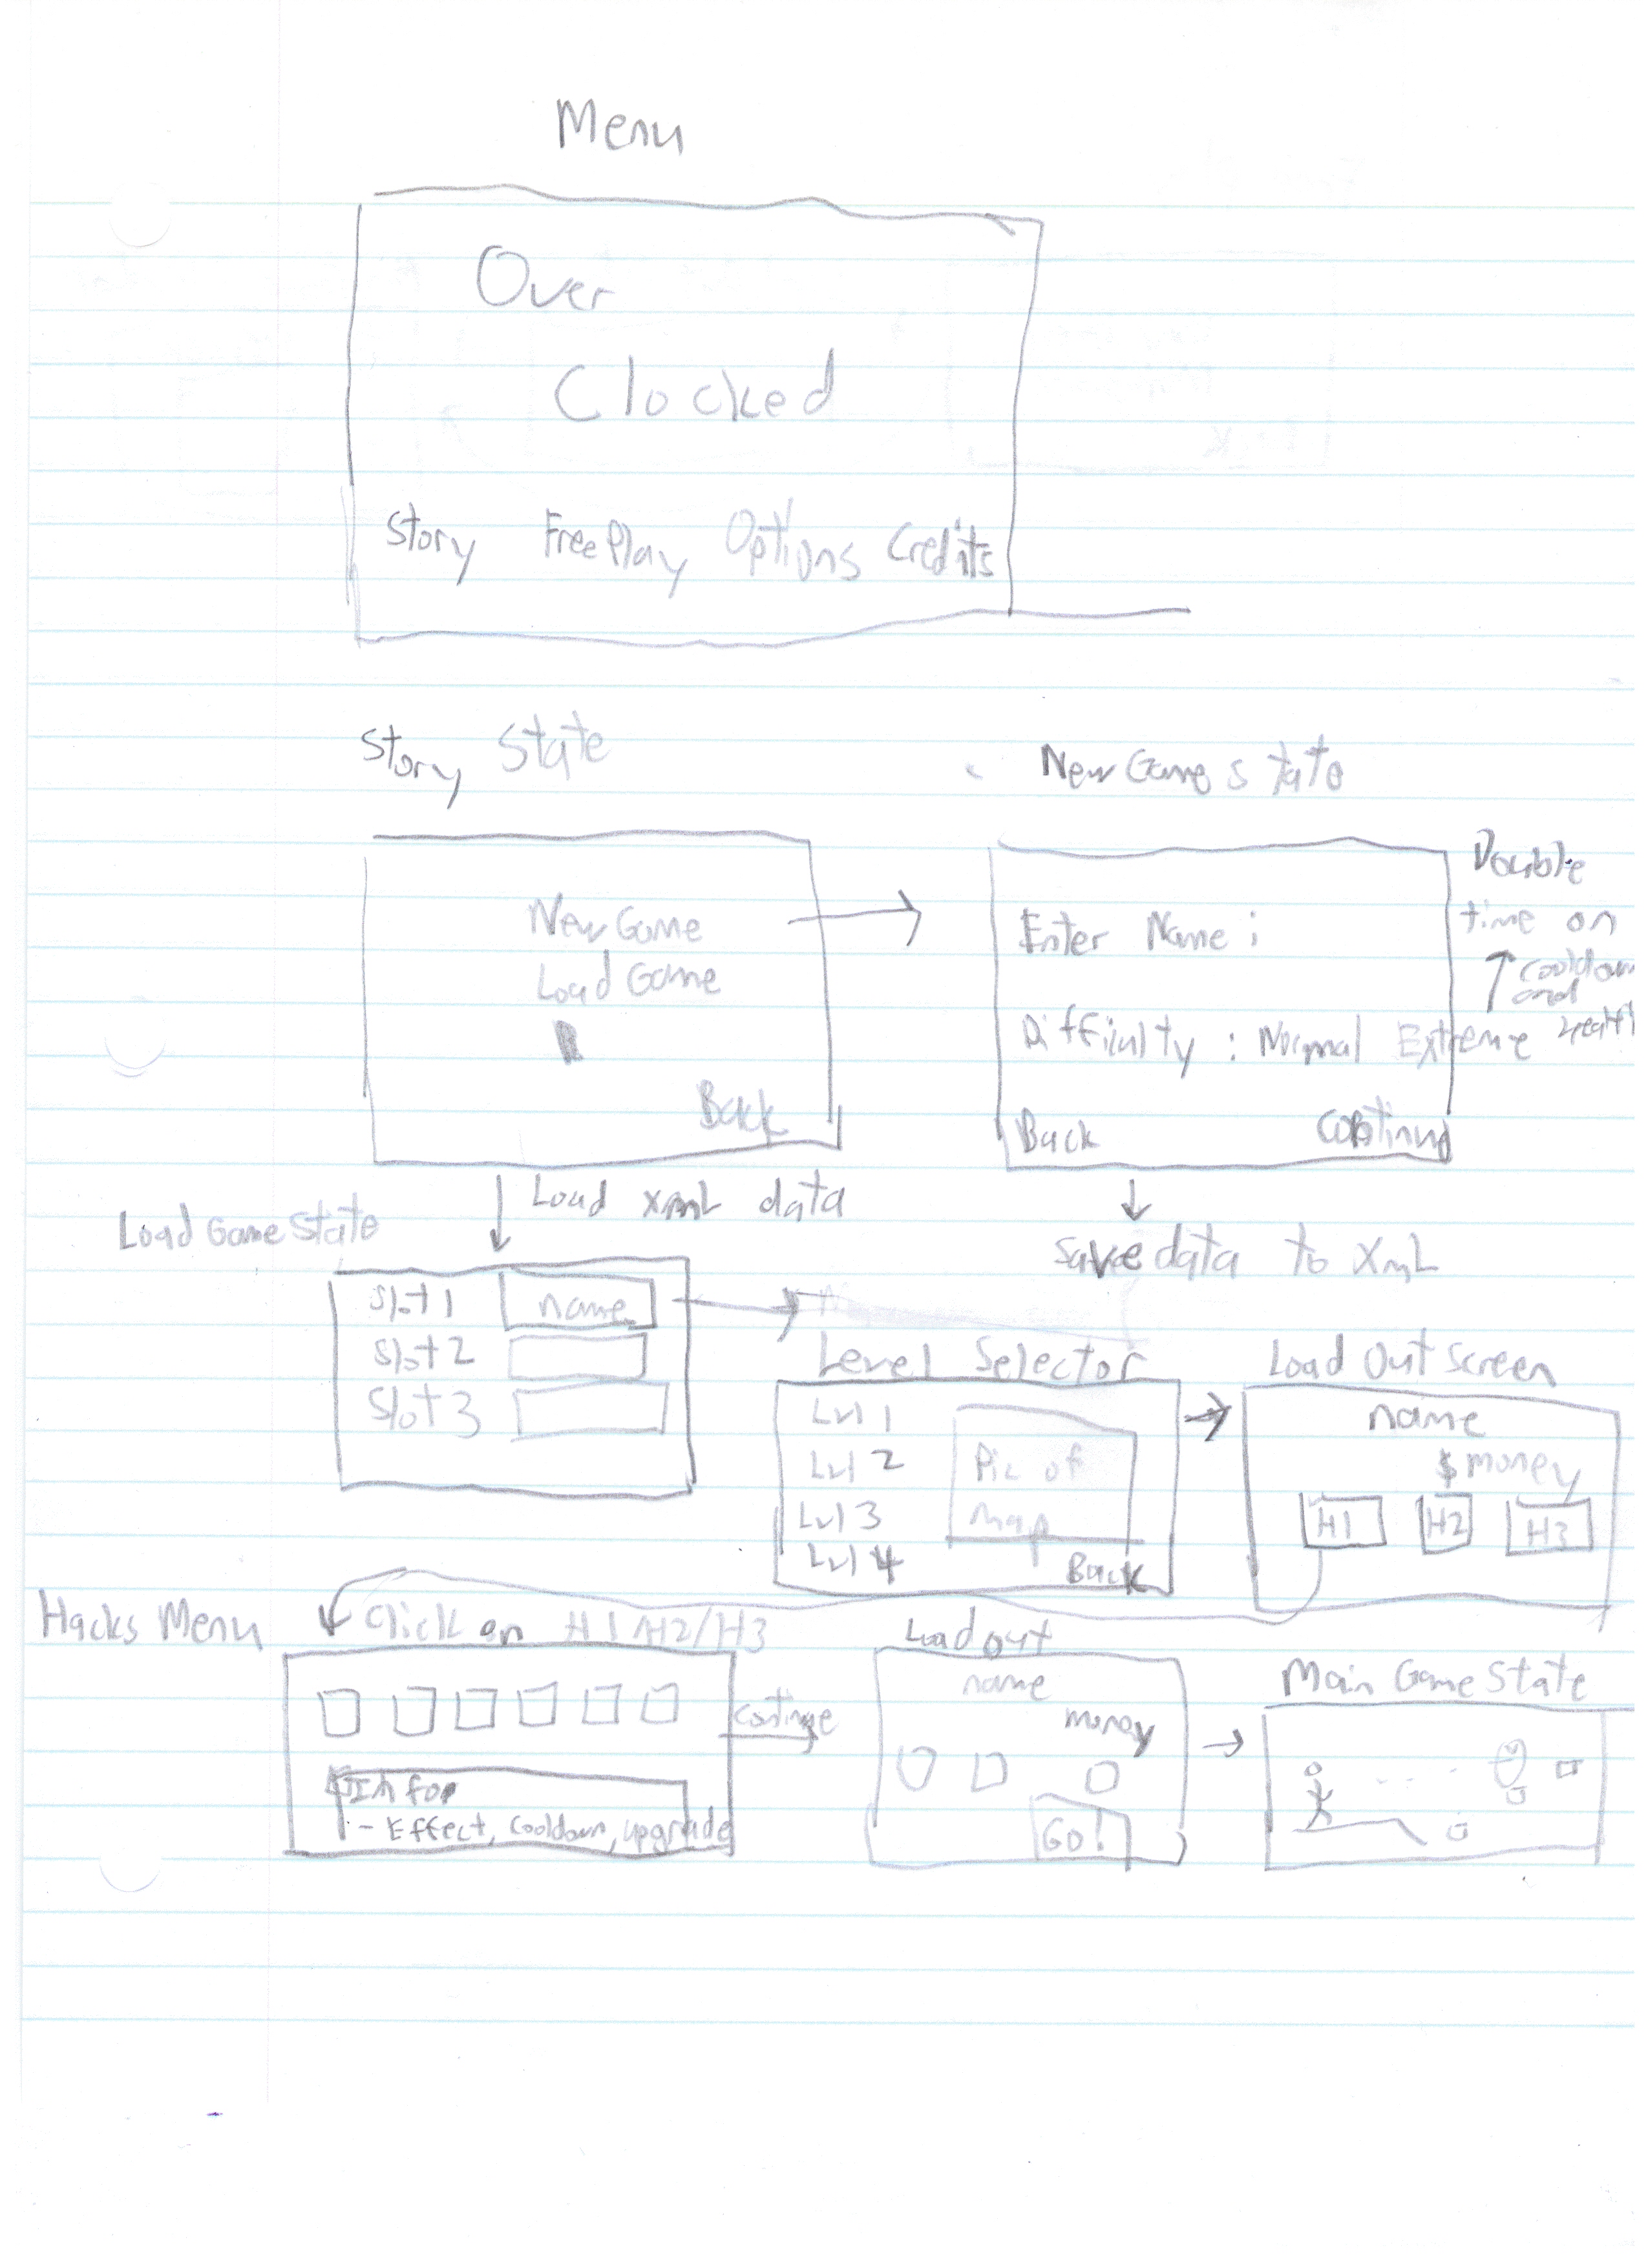 Menu
Over
Clocked
Story FreePlay Options Credits
Story State
New Game State
New Game
Load Game
Back
Enter Name :
Difficulty : Normal Extreme
Back Continue
Double
time on
cooldown
and
Load xmL data
Save data to XmL
Load Game State
Slot 1 name
Slot 2
Slot 3
Level Selector
Lvl 1
Lvl 2
Lvl 3
Lvl 4
Pic of
Map
Back
Load Out Screen
name
$ money
H1 H2 H3
Hacks Menu
Click on H1/H2/H3
Info
- Effect, Cooldown, upgrade
continue
Load out
name
money
Go!
Main Game State